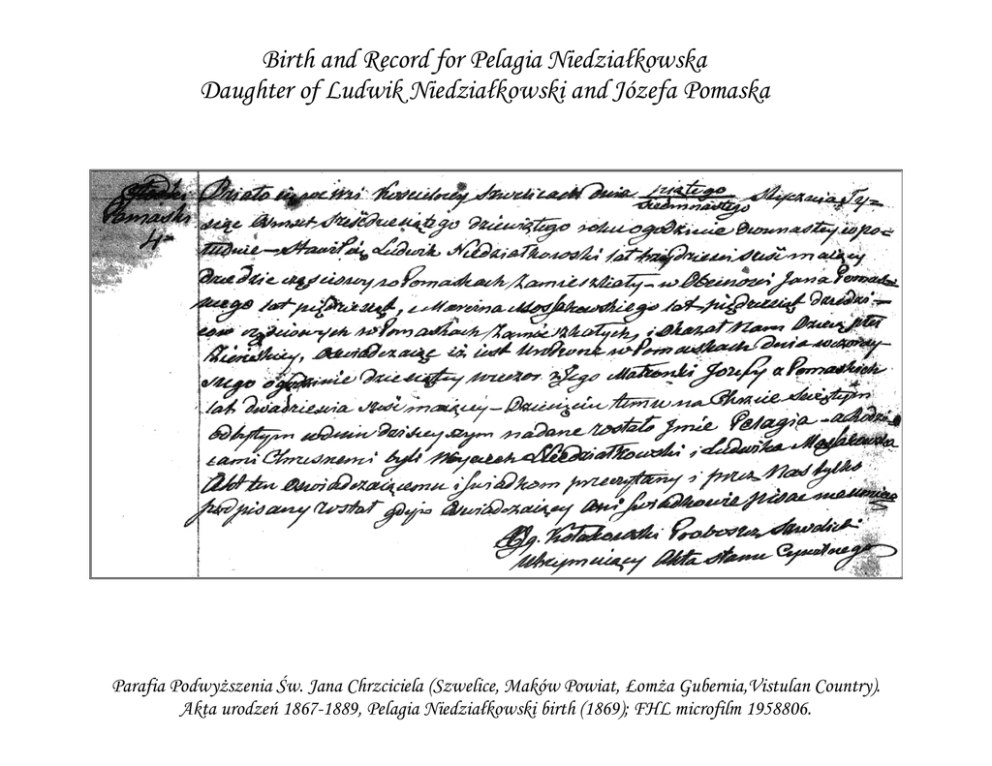 Birth and Record for Pelagia Niedziałkowska
Daughter of Ludwik Niedziałkowski and Józefa Pomaska
Pomaski
4
Działo się we wsi Kościelney Szwelicach dnia piątego siedmnastego Stycznia Ty=
siąc ośmset sześćdziesiątego dziewiątego roku o godzinie dwunastey w po=
łudnie – stawił się Ludwik Niedziałkowski lat trzydzieści sześć maiący
dziedzic częściowy w Pomaskach zamieszkały – w obecności Jana Pomas
kiego lat pięćdziesiąt, i Marcina Mosakowskiego lat pięćdziesiąt dziedzi=
ców częściowych w Pomaskach zamieszkałych, i okazał Nam Dziecię płci
Żeńskiey, oświadczaiąc iż iest urodzone w Pomaskach dnia wczoray=
szego o godzinie dziesiątey wieczor z Jego Małżonki Jozefy z Pomaskich
lat dwadzieścia sześć maiącey – Dziecięciu temu na Chrzcie Świętym
odbytym w dniu dzisieyszym nadane zostało Jmie Pelagia – a Rodzi
cami Chrzesnemi byli Woyciech Niedziałkowski i Ludwika Mosakowska
Akt ten oświadczaiącemu i świadkom przeczytany i przez Nas tylko
podpisany został gdyż oświadczaiący ani świadkowie pisać nieumieią
Kołakowski Proboszcz Szwelicki
Utrzymuiący Akta Stanu Cywilnego
Parafia Podwyższenia Św. Jana Chrzciciela (Szwelice, Maków Powiat, Łomża Gubernia,Vistulan Country).
Akta urodzeń 1867-1889, Pelagia Niedziałkowski birth (1869); FHL microfilm 1958806.